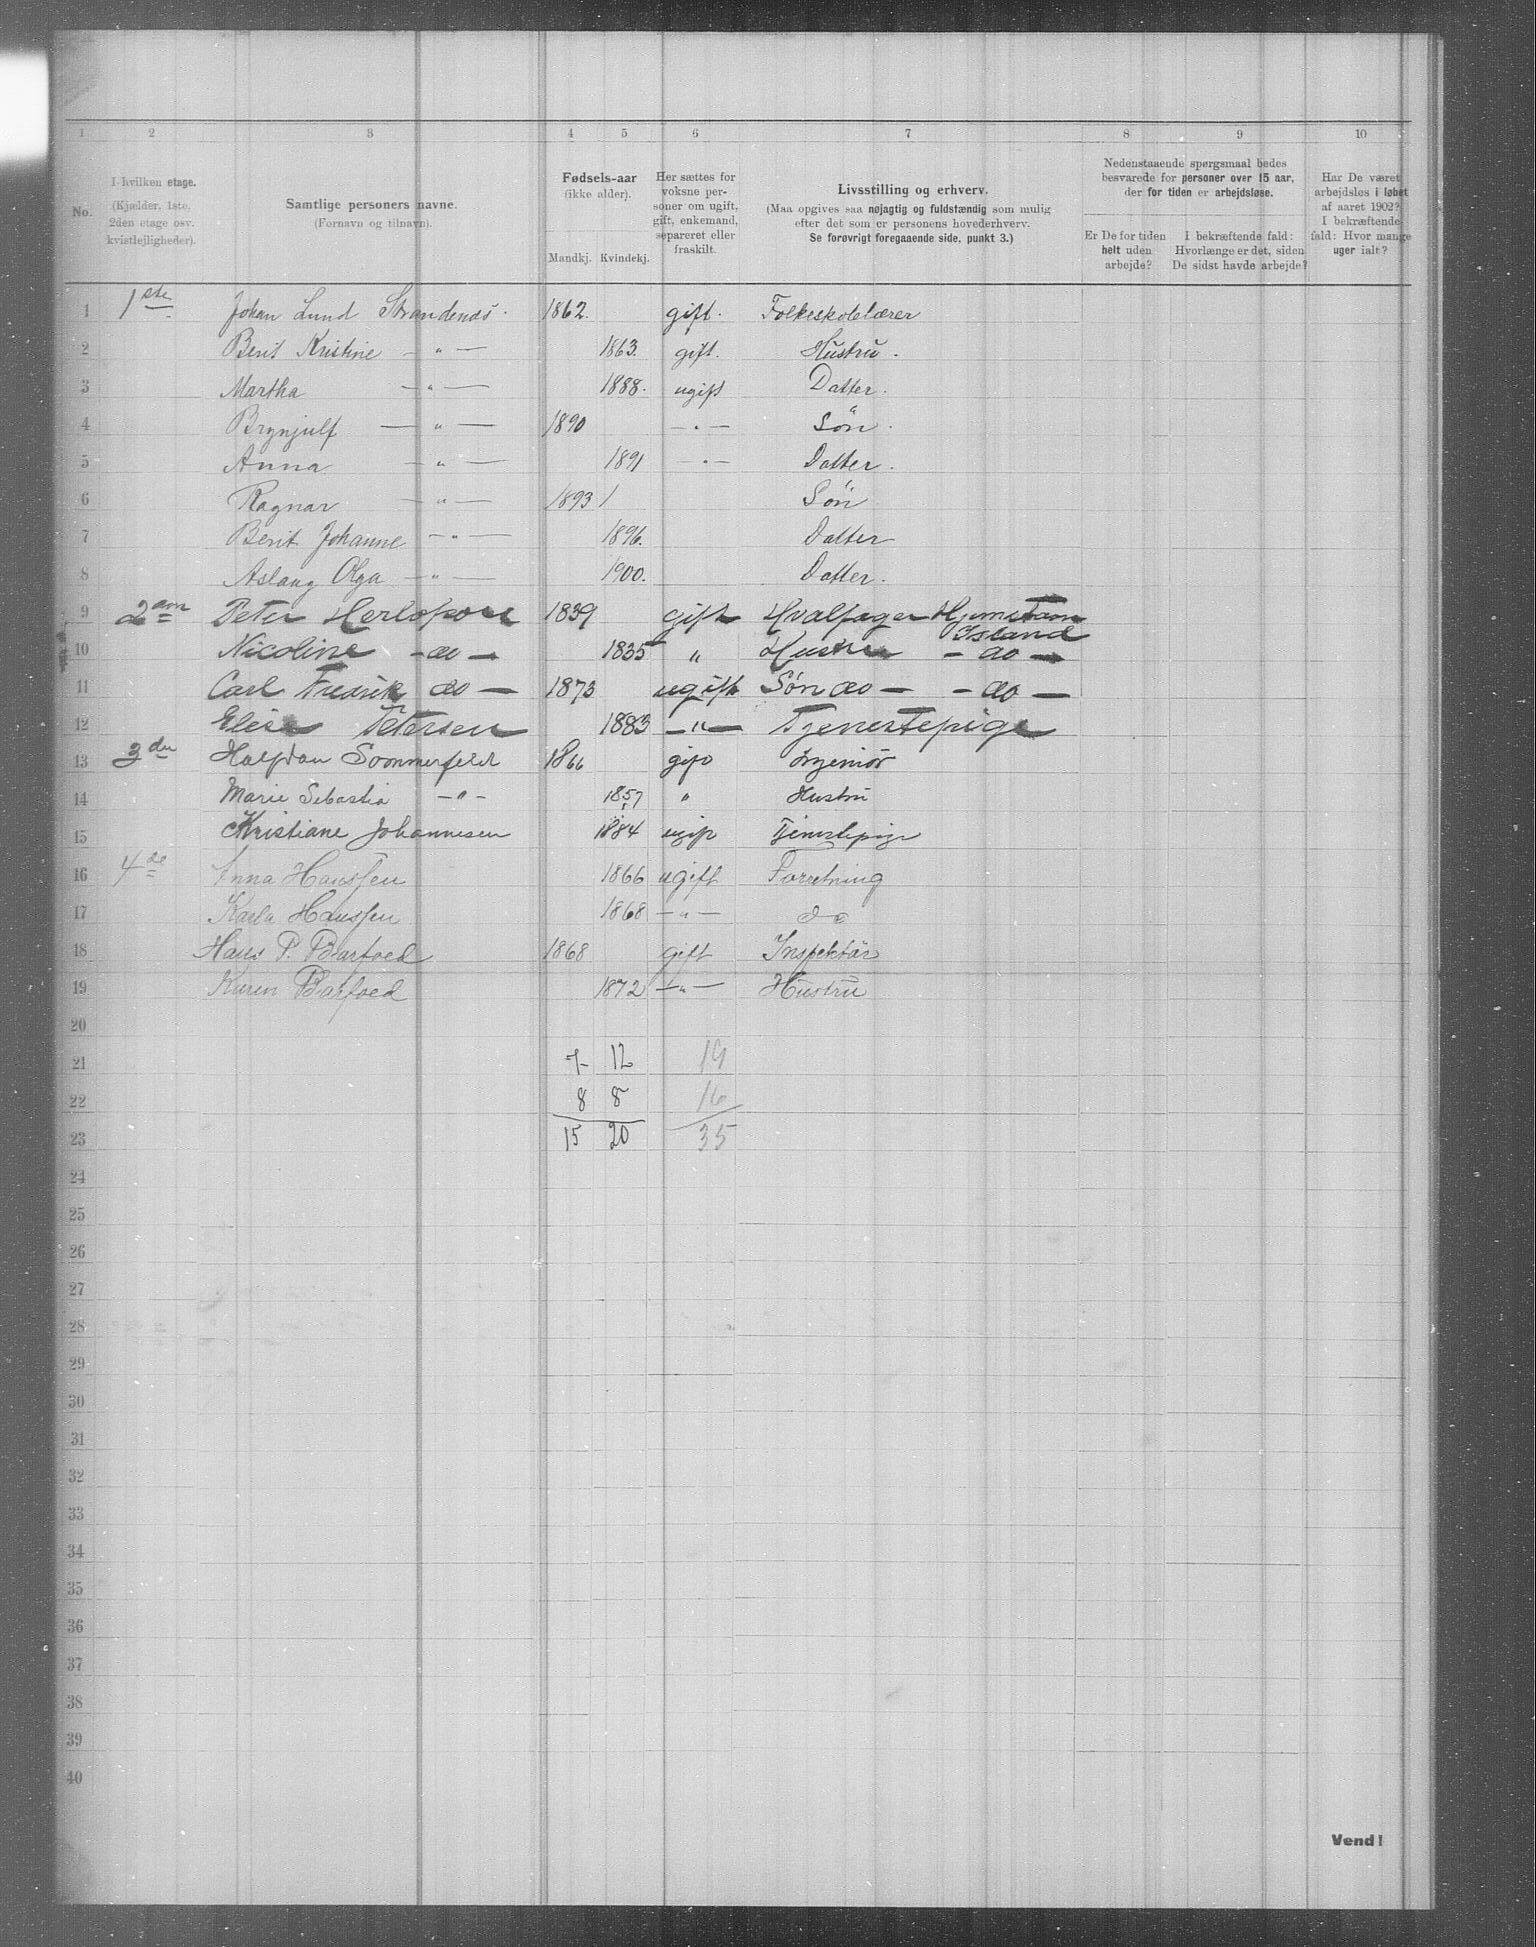 1 2 3 4 5 6 7 8 9 10
No.
I hvilken etage.
(Kjælder, 1ste,
2den etage osv.
kvistlejligheder).
Samtlige personers navne.
(Fornavn og tilnavn).
Fødsels-aar
(ikke alder).
Mandkj. Kvindekj.
Her sættes for
voksne per-
soner om ugift,
gift, enkemand,
separeret eller
fraskilt.
Livsstilling og erhverv.
(Maa opgives saa nøjagtig og fuldstændig som mulig
efter det som er personens hovederhverv.
Se forøvrigt foregaaende side, punkt 3.)
Nedenstaaende spørgsmaal bedes
besvarede for personer over 15 aar,
der for tiden er arbejdsløse.
Er De for tiden
helt uden
arbejde?
I bekræftende fald:
Hvorlænge er det, siden
De sidst havde arbejde?
Har De været
arbejdsløs i løbet
af aaret 1902?
I bekræftende
fald: Hvor mange
uger ialt?
1 1ste Johan Lund Strandenæs. 1862. gift. Folkeskolelærer
2 Berit Kristine — " — 1863. gift. Hustru.
3 Martha — " — 1888. ugift Datter.
4 Brynjulf — " — 1890 — " — Søn.
5 Anna — " — 1891 — " — Datter.
6 Ragnar — " — 1893 / Søn
7 Berit Johanne — " — 1896. Datter
8 Aslaug Olga — " — 1900. Datter.
9 2 Peter 1839 gift Hvalfager
Island
10 Nicoline - do - 1835 " Hustru - do -
11 Carl Fredrik do - 1873 ugift Søn do - - do -
12 Elise Petersen 1883 - " - Tjenestepige
13 3die Halfdan Sommerfeldt 1866 gift Ingeniør
14 Marie Sebastia - " - 1857 " Hustru
15 Kristiane Johannesen 1884 ugift Tjenestepige
16 4de Anna Hanssen 1866 ugift Forretning
17 Karla Hanssen 1868 — " — do
18 Hans P. Barfoed 1868 gift Inspektør
19 Karen Barfoed 1872 — " — Hustru
20
21 7 12 19
22 8 8 16
23 15 20 35
24
25
26
27
28
29
30
31
32
33
34
35
36
37
38
39
40
Vend!